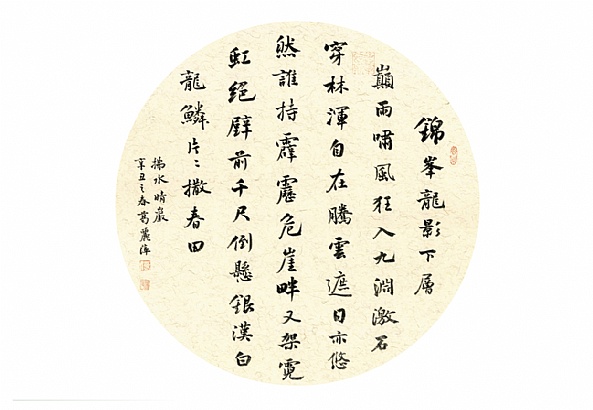 錦峯龍影下層
巔雨嘯風狂入九淵激石
穿林渾自在騰雲遮日亦悠
然誰持霹靂危崖畔又架霓
虹絕壁前千尺倒懸銀漢白
龍鱗片〻撒春田
拂水晴巖
辛丑之春葛麗萍